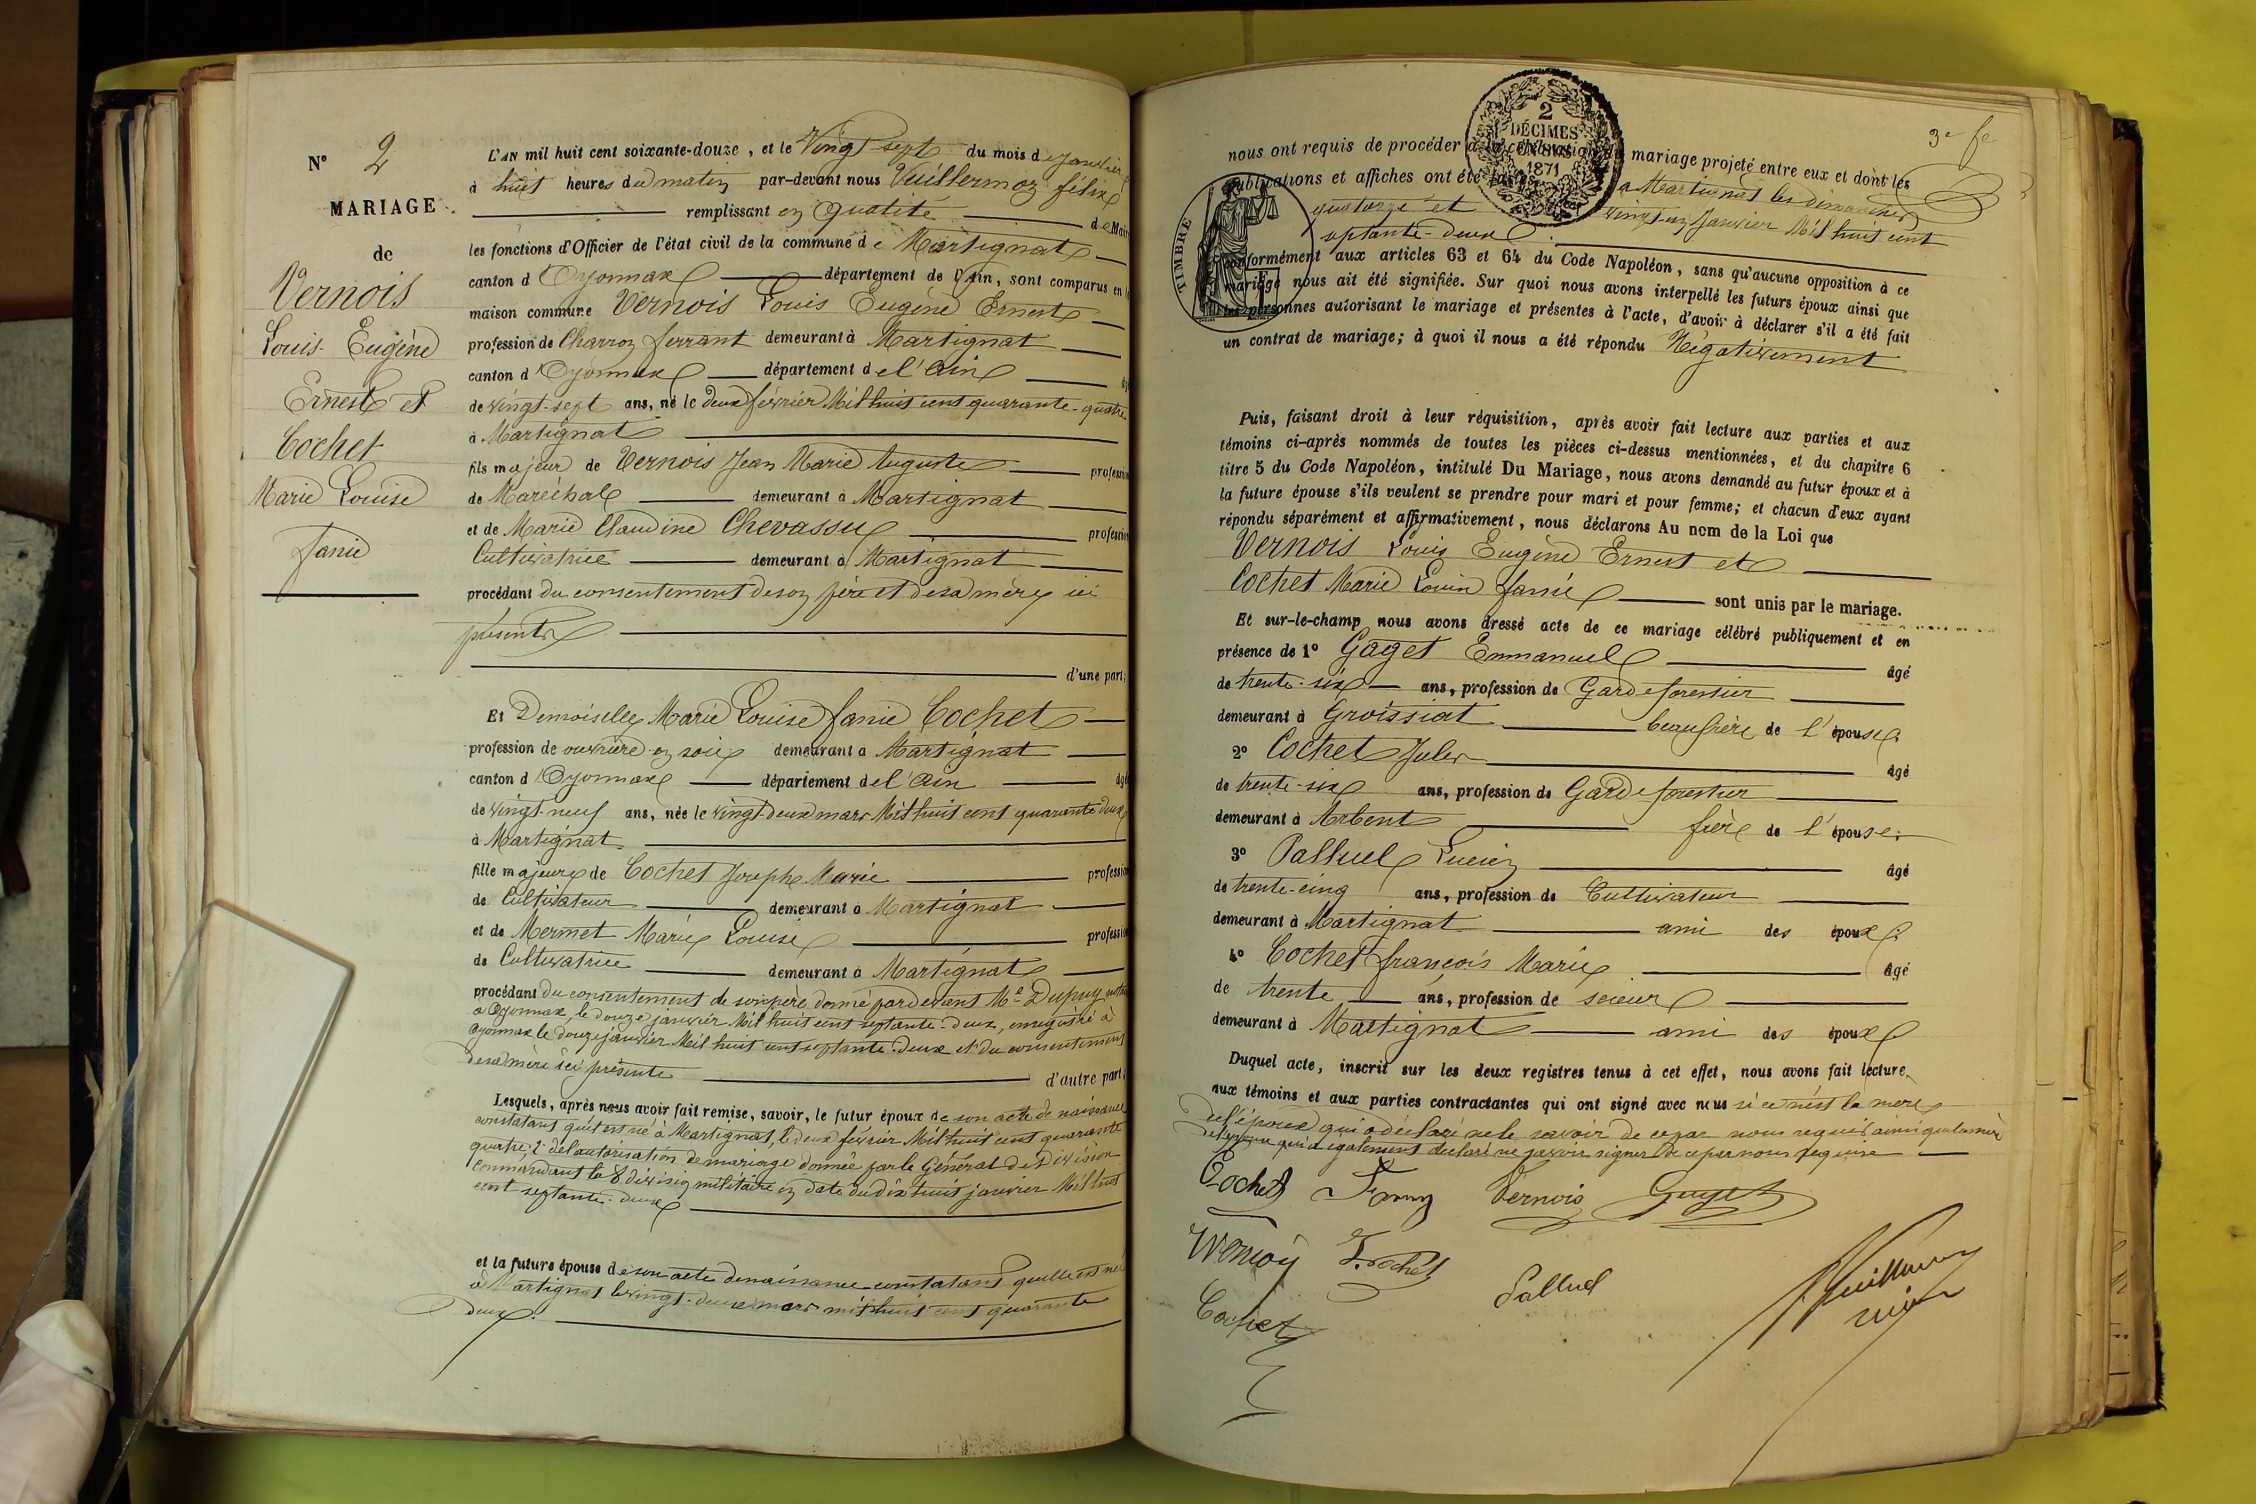 N° 2
MARIAGE
de
Vernois
Louis Eugène
Ernest et
Cochet
Marie Louise
Fanie
L'AN mil huit cent soixante-douze, et le Vingt-sept du mois de Janvier
à huit heures du matin par-devant nous Vuillermoz félix
remplissant en Qualité de Maire
les fonctions d'Officier de l'état civil de la commune de Martignat
canton d'Oyonnax département de l'Ain, sont comparus en la
maison commune Vernois Louis Eugène Ernest
profession de Charron ferrant demeurant à Martignat
canton d'Oyonnax département de l'Ain âgé
de vingt-sept ans, né le deux février Mil huit cent quarante-quatre
à Martignat
fils majeur de Vernois Jean Marie Auguste profession
de Maréchal demeurant à Martignat
et de Marie Claudine Chevassu profession
Cultivatrice demeurant à Martignat
procédant du consentement de son père et de sa mère ici
présents
d'une part;
Et Demoiselle Marie Louise fanie Cochet
profession de ouvrière en soie demeurant à Martignat
canton d'Oyonnax département de l'Ain âgé
de vingt-neuf ans, née le vingt-deux mars Mil huit cent quarante deux
à Martignat
fille majeure de Cochet Joseph Marie profession
de Cultivateur demeurant à Martignat
et de Mermet Marie Louise profession
de Cultivatrice demeurant à Martignat
procédant du consentement de son père donné pardevant Me Dupuy notaire
à Oyonnax, le douze janvier Mil huit cent septante-deux, enregistré à
Oyonnax le douze janvier Mil huit cent septante-deux et du consentement
de sa mère ici présente d'autre part;
Lesquels, après nous avoir fait remise, savoir, le futur époux de son acte de naissance
constatant qu'il est né à Martignat, le deux février Mil huit cent quarante
quatre, 2° de l'autorisation de mariage donnée par le Général de Division
commandant la 8 division militaire en date du dix huit janvier Mil huit
cent septante-deux
et la future épouse de son acte de naissance constatant qu'elle est née
à Martignat le vingt-deux mars mil huit cent quarante
deux.
3e fe
nous ont requis de procéder à la célébration du mariage projeté entre eux et dont les
publications et affiches ont été faites à Martignat les dimanches
quatorze et vingt-un Janvier Mil huit cent
septante-deux
conformément aux articles 63 et 64 du Code Napoléon, sans qu'aucune opposition à ce
mariage nous ait été signifiée. Sur quoi nous avons interpellé les futurs époux ainsi que
les personnes autorisant le mariage et présentes à l'acte, d'avoir à déclarer s'il a été fait
un contrat de mariage; à quoi il nous a été répondu Négativement
2
DÉCIMES
EN SUS
1871
TIMBRE
Puis, faisant droit à leur réquisition, après avoir fait lecture aux parties et aux
témoins ci-après nommés de toutes les pièces ci-dessus mentionnées, et du chapitre 6
titre 5 du Code Napoléon, intitulé Du Mariage, nous avons demandé au futur époux et à
la future épouse s'ils veulent se prendre pour mari et pour femme; et chacun d'eux ayant
répondu séparément et affirmativement, nous déclarons Au nom de la Loi que
Vernois Louis Eugène Ernest et
Cochet Marie Louise fanie sont unis par le mariage.
Et sur-le-champ nous avons dressé acte de ce mariage célébré publiquement et en
présence de 1° Gaget Emmanuel âgé
de trente-six ans, profession de Garde forestier
demeurant à Groissiat beaufrère de l'épouse.
2° Cochet Jules âgé
de trente-six ans, profession de Garde forestier
demeurant à Arbent frère de l'épouse;
3° Palluel Lucien âgé
de trente-cinq ans, profession de Cultivateur
demeurant à Martignat ami des époux;
4° Cochet françois Marie âgé
de trente ans, profession de scieur
demeurant à Martignat ami des époux
Duquel acte, inscrit sur les deux registres tenus à cet effet, nous avons fait lecture
aux témoins et aux parties contractantes qui ont signé avec nous si ce n'est la mère
de l'époux qui a déclaré ne le savoir de ce par nous requis ainsi que la mère
de l'épouse qui a également déclaré ne savoir signer de ce par nous requise
Cochet Fanny Vernois Gaget
Vernois F. Cochet
Cochet Palluel Vuillermoz
maire